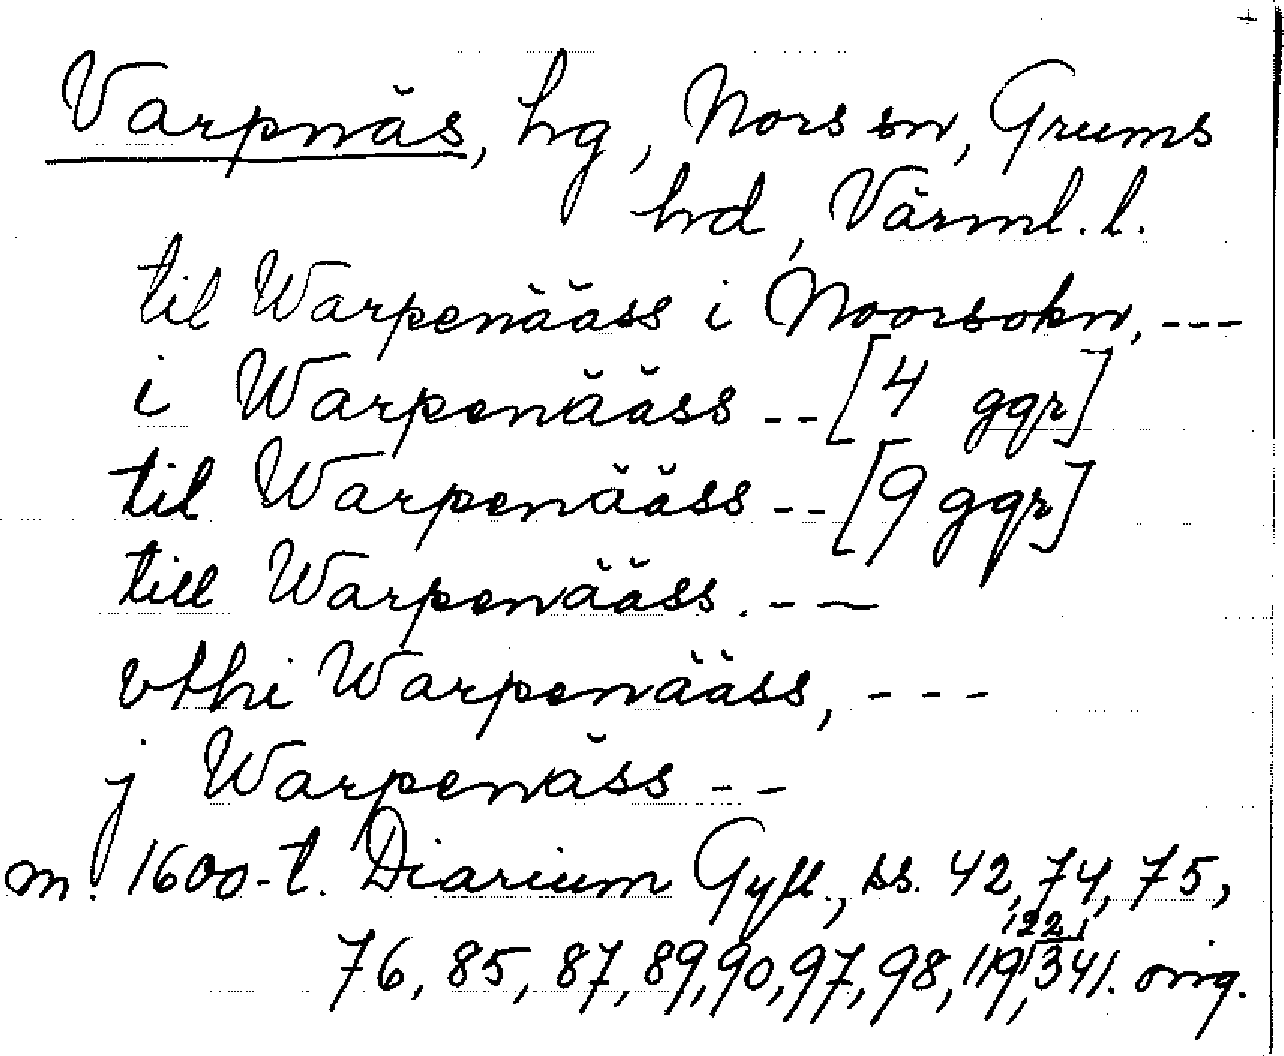 Varpnäs, hg, Nors sn, Grums
hd, Värml. l.
til Warpenääss i Noorsokn, ---
i Warpenääss -- [4 ggr]
til Warpenääss -- [9 ggr]
till Warpenääss. --
vthi Warpenääss, ---
j Warpenäss --
m. 1600-t. Diarium Gyll., ss. 42, 74, 75,
122,
76, 85, 87, 89, 90, 97, 98, 119, 341. orig.